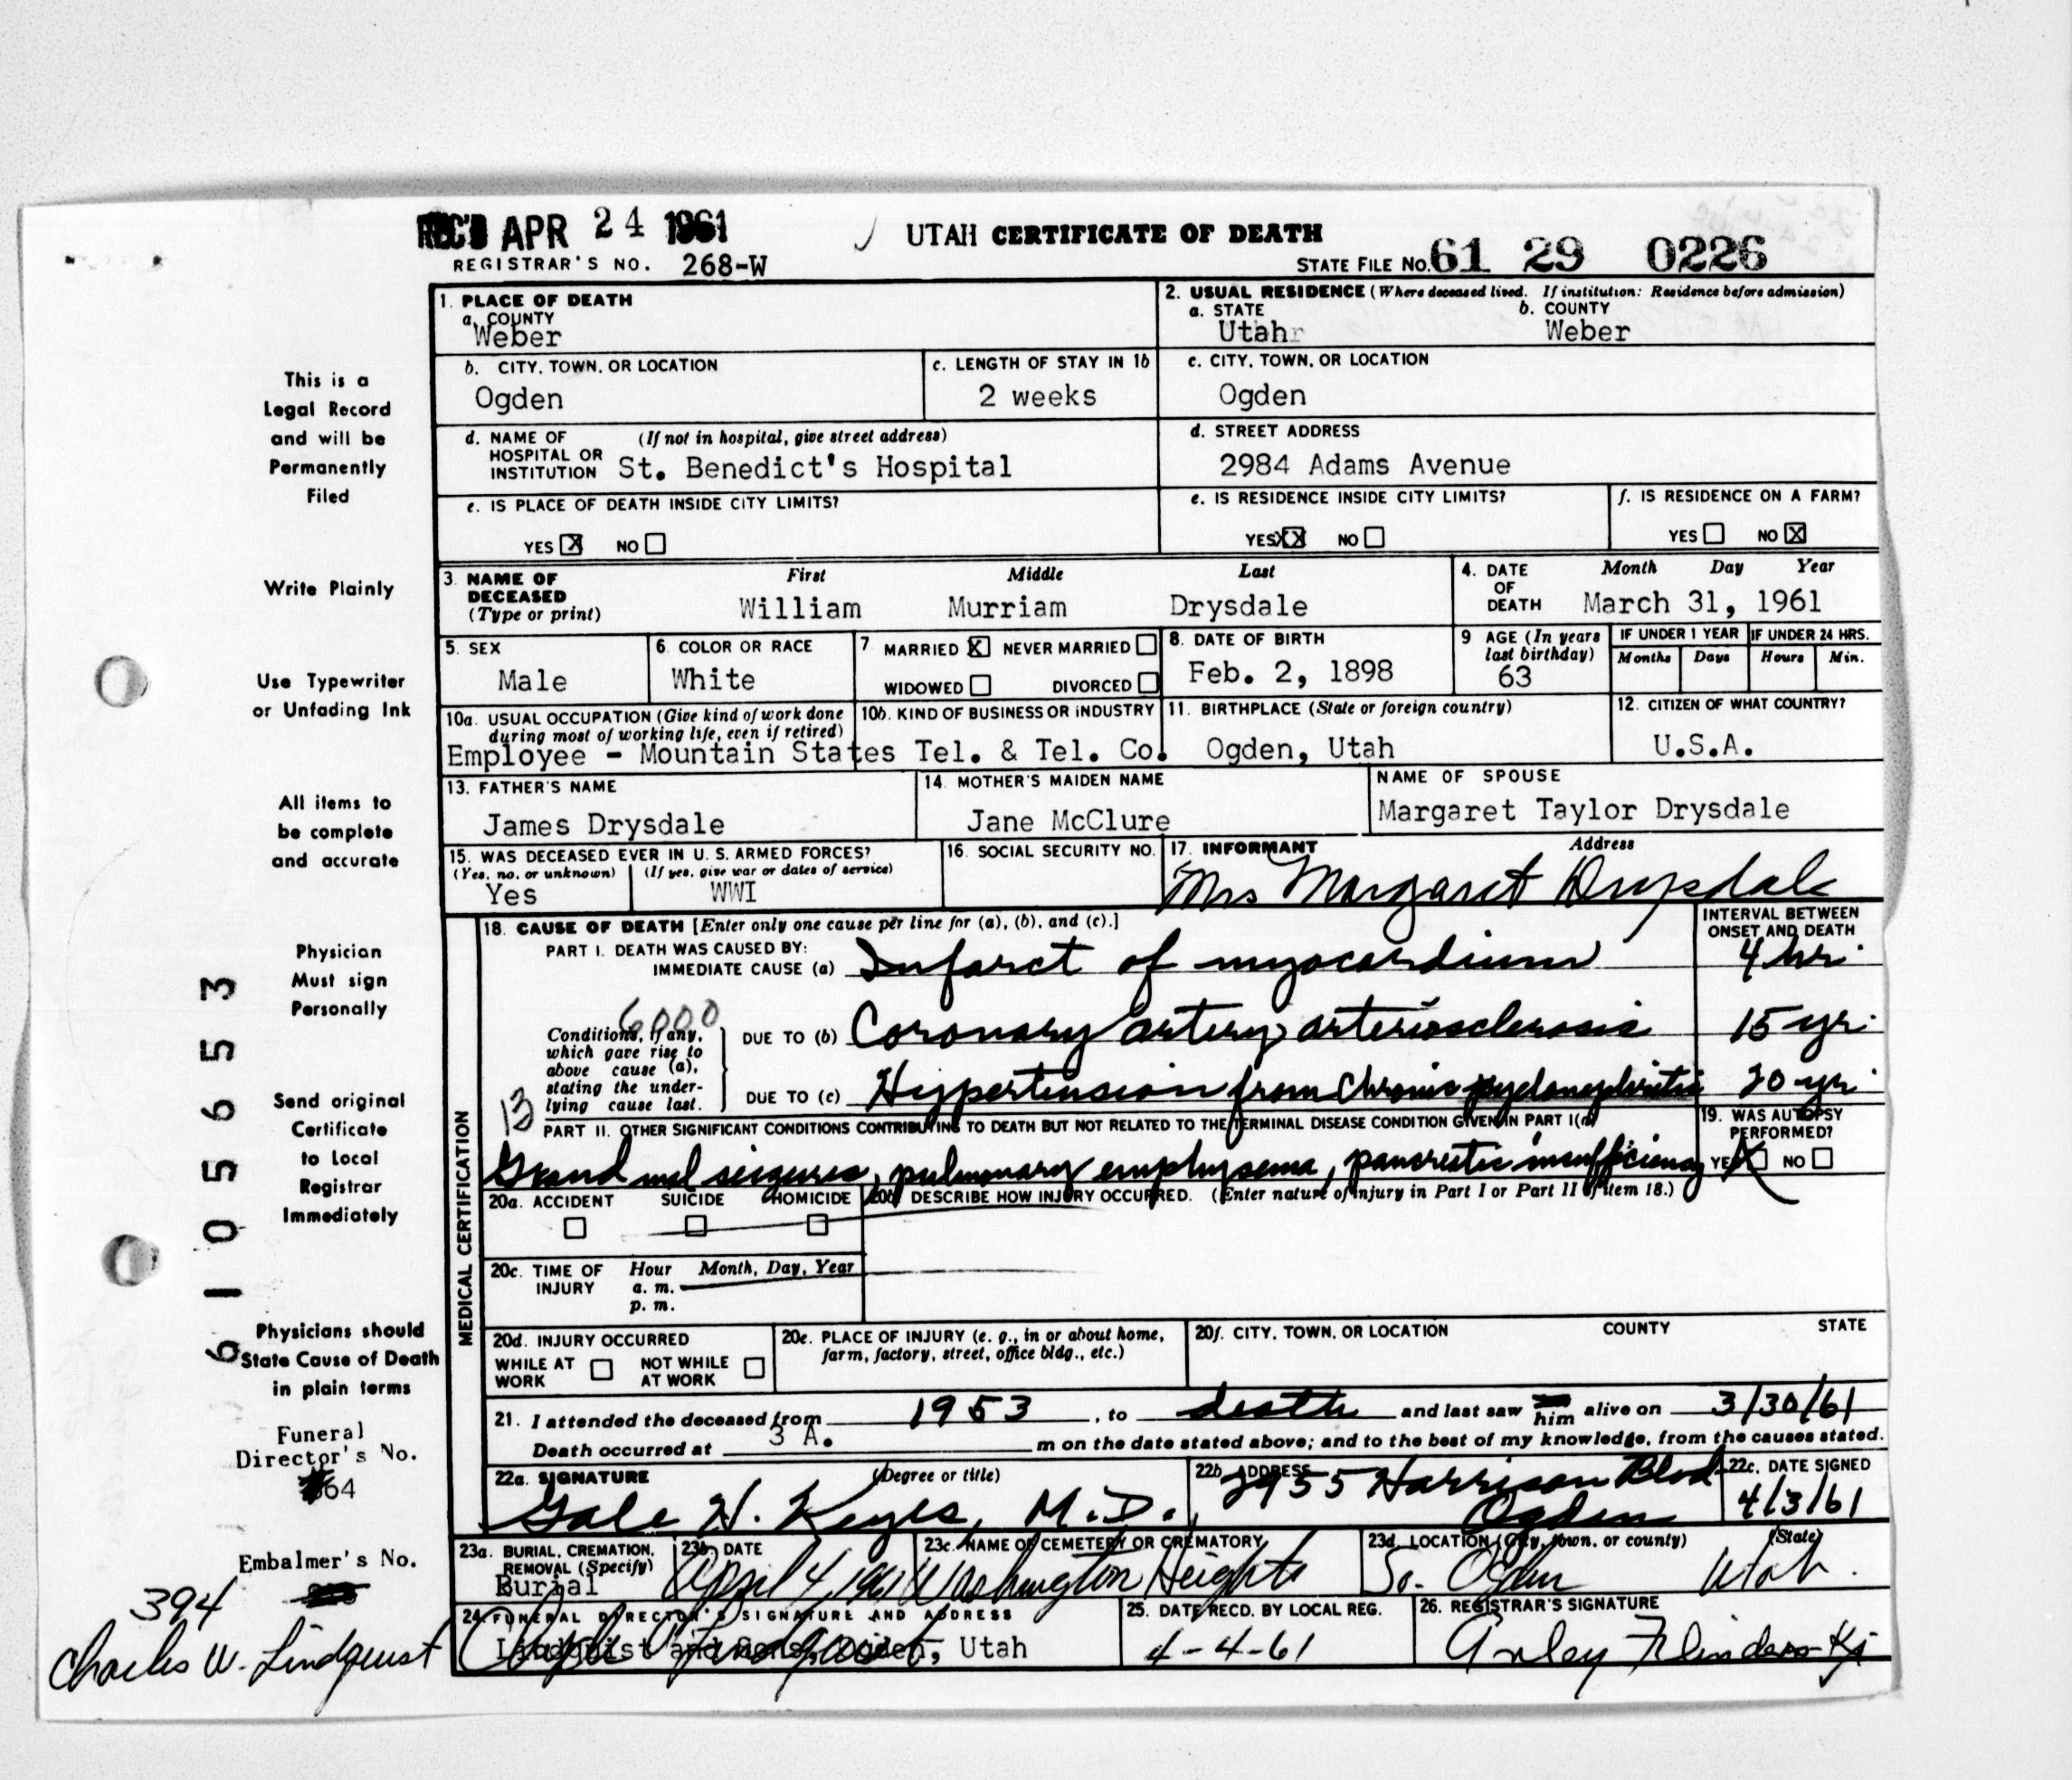 REC'D APR 24 1961
UTAH CERTIFICATE OF DEATH
REGISTRAR'S NO. 268-W
STATE FILE NO. 61 29 0226
1. PLACE OF DEATH
a. COUNTY
Weber
2. USUAL RESIDENCE (Where deceased lived. If institution: Residence before admission)
a. STATE b. COUNTY
Utah Weber
b. CITY, TOWN, OR LOCATION
Ogden
c. LENGTH OF STAY IN 1b
2 weeks
c. CITY, TOWN, OR LOCATION
Ogden
d. NAME OF (If not in hospital, give street address)
HOSPITAL OR
INSTITUTION St. Benedict's Hospital
d. STREET ADDRESS
2984 Adams Avenue
e. IS PLACE OF DEATH INSIDE CITY LIMITS?
YES X NO
e. IS RESIDENCE INSIDE CITY LIMITS?
YES XX NO
f. IS RESIDENCE ON A FARM?
YES NO X
3. NAME OF DECEASED (Type or print)
First Middle Last
William Murriam Drysdale
4. DATE OF DEATH
Month Day Year
March 31, 1961
5. SEX
Male
6. COLOR OR RACE
White
7 MARRIED X NEVER MARRIED
WIDOWED DIVORCED
8. DATE OF BIRTH
Feb. 2, 1898
9 AGE (In years last birthday)
63
IF UNDER 1 YEAR IF UNDER 24 HRS.
Months Days Hours Min.
10a. USUAL OCCUPATION (Give kind of work done
during most of working life, even if retired)
10b. KIND OF BUSINESS OR INDUSTRY
Employee - Mountain States Tel. & Tel. Co.
11. BIRTHPLACE (State or foreign country)
Ogden, Utah
12. CITIZEN OF WHAT COUNTRY?
U.S.A.
13. FATHER'S NAME
James Drysdale
14. MOTHER'S MAIDEN NAME
Jane McClure
NAME OF SPOUSE
Margaret Taylor Drysdale
15. WAS DECEASED EVER IN U. S. ARMED FORCES?
(Yes, no, or unknown) (If yes, give war or dates of service)
Yes WWI
16. SOCIAL SECURITY NO.
17. INFORMANT Address
Mrs Margaret Drysdale
MEDICAL CERTIFICATION
18. CAUSE OF DEATH [Enter only one cause per line for (a), (b), and (c).]
INTERVAL BETWEEN
ONSET AND DEATH
PART I. DEATH WAS CAUSED BY:
IMMEDIATE CAUSE (a) Infarct of myocardium 4 hr.
6000
Conditions, if any,
which gave rise to
above cause (a),
stating the under-
lying cause last.
DUE TO (b) Coronary artery arteriosclerosis 15 yr.
DUE TO (c) Hypertension from Chronic pyelonephritis 20 yr.
13
PART II. OTHER SIGNIFICANT CONDITIONS CONTRIBUTING TO DEATH BUT NOT RELATED TO THE TERMINAL DISEASE CONDITION GIVEN IN PART I(a)
Grand mal seizures, pulmonary emphysema, pancreatic insufficiency
19. WAS AUTOPSY
PERFORMED?
YES X NO
20a. ACCIDENT SUICIDE HOMICIDE
20b. DESCRIBE HOW INJURY OCCURRED. (Enter nature of injury in Part I or Part II of item 18.)
20c. TIME OF INJURY
Hour Month, Day, Year
a. m.
p. m.
20d. INJURY OCCURRED
WHILE AT WORK NOT WHILE AT WORK
20e. PLACE OF INJURY (e. g., in or about home,
farm, factory, street, office bldg., etc.)
20f. CITY, TOWN, OR LOCATION COUNTY STATE
21. I attended the deceased from 1953, to death and last saw him alive on 3/30/61
Death occurred at 3 A. m on the date stated above; and to the best of my knowledge, from the causes stated.
22a. SIGNATURE (Degree or title)
Gale H. Keyes, M.D.,
22b. ADDRESS
2955 Harrison Blvd
Ogden
22c. DATE SIGNED
4/3/61
23a. BURIAL, CREMATION,
REMOVAL (Specify)
Burial
23b. DATE
April 4, 1961
23c. NAME OF CEMETERY OR CREMATORY
Washington Heights
23d. LOCATION (City, town, or county) (State)
So. Ogden Utah.
24. FUNERAL DIRECTOR'S SIGNATURE AND ADDRESS
Lindquist and Sons, Ogden, Utah
25. DATE RECD. BY LOCAL REG.
4-4-61
26. REGISTRAR'S SIGNATURE
This is a
Legal Record
and will be
Permanently
Filed
Write Plainly
Use Typewriter
or Unfading Ink
All items to
be complete
and accurate
Physician
Must sign
Personally
Send original
Certificate
to Local
Registrar
Immediately
Physicians should
State Cause of Death
in plain terms
Funeral
Director's No.
64
Embalmer's No.
394
Charles W. Lindquist
6105653